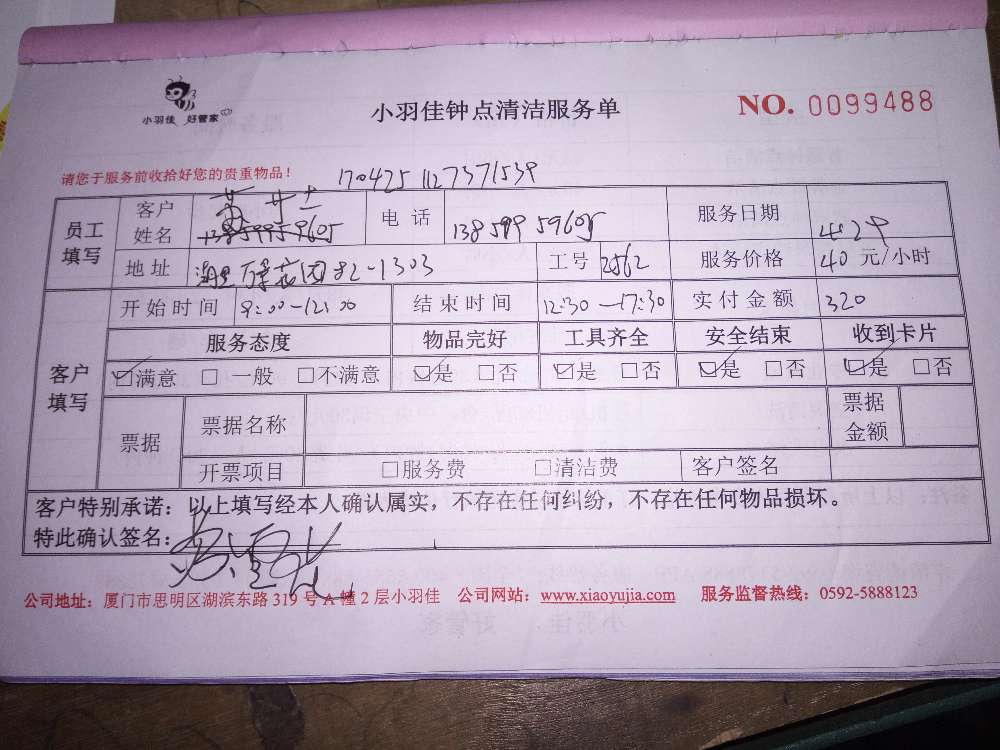 小羽佳 好管家
小羽佳钟点清洁服务单
NO. 0099488
请您于服务前收拾好您的贵重物品！
1704251127371539
员工填写 客户姓名 13859959605 电话 13859959605 服务日期
地址 万景花园82-1303 工号 2562 服务价格 40 元/小时
客户填写 开始时间 9:00-12:00 结束时间 12:30-17:30 实付金额 320
服务态度 物品完好 工具齐全 安全结束 收到卡片
☑满意 □一般 □不满意 ☑是 □否 ☑是 □否 ☑是 □否 ☑是 □否
票据 票据名称 票据金额
开票项目 □服务费 □清洁费 客户签名
客户特别承诺：以上填写经本人确认属实，不存在任何纠纷，不存在任何物品损坏。
特此确认签名：
公司地址：厦门市思明区湖滨东路 319 号 A 幢 2 层小羽佳 公司网站：www.xiaoyujia.com 服务监督热线：0592-5888123